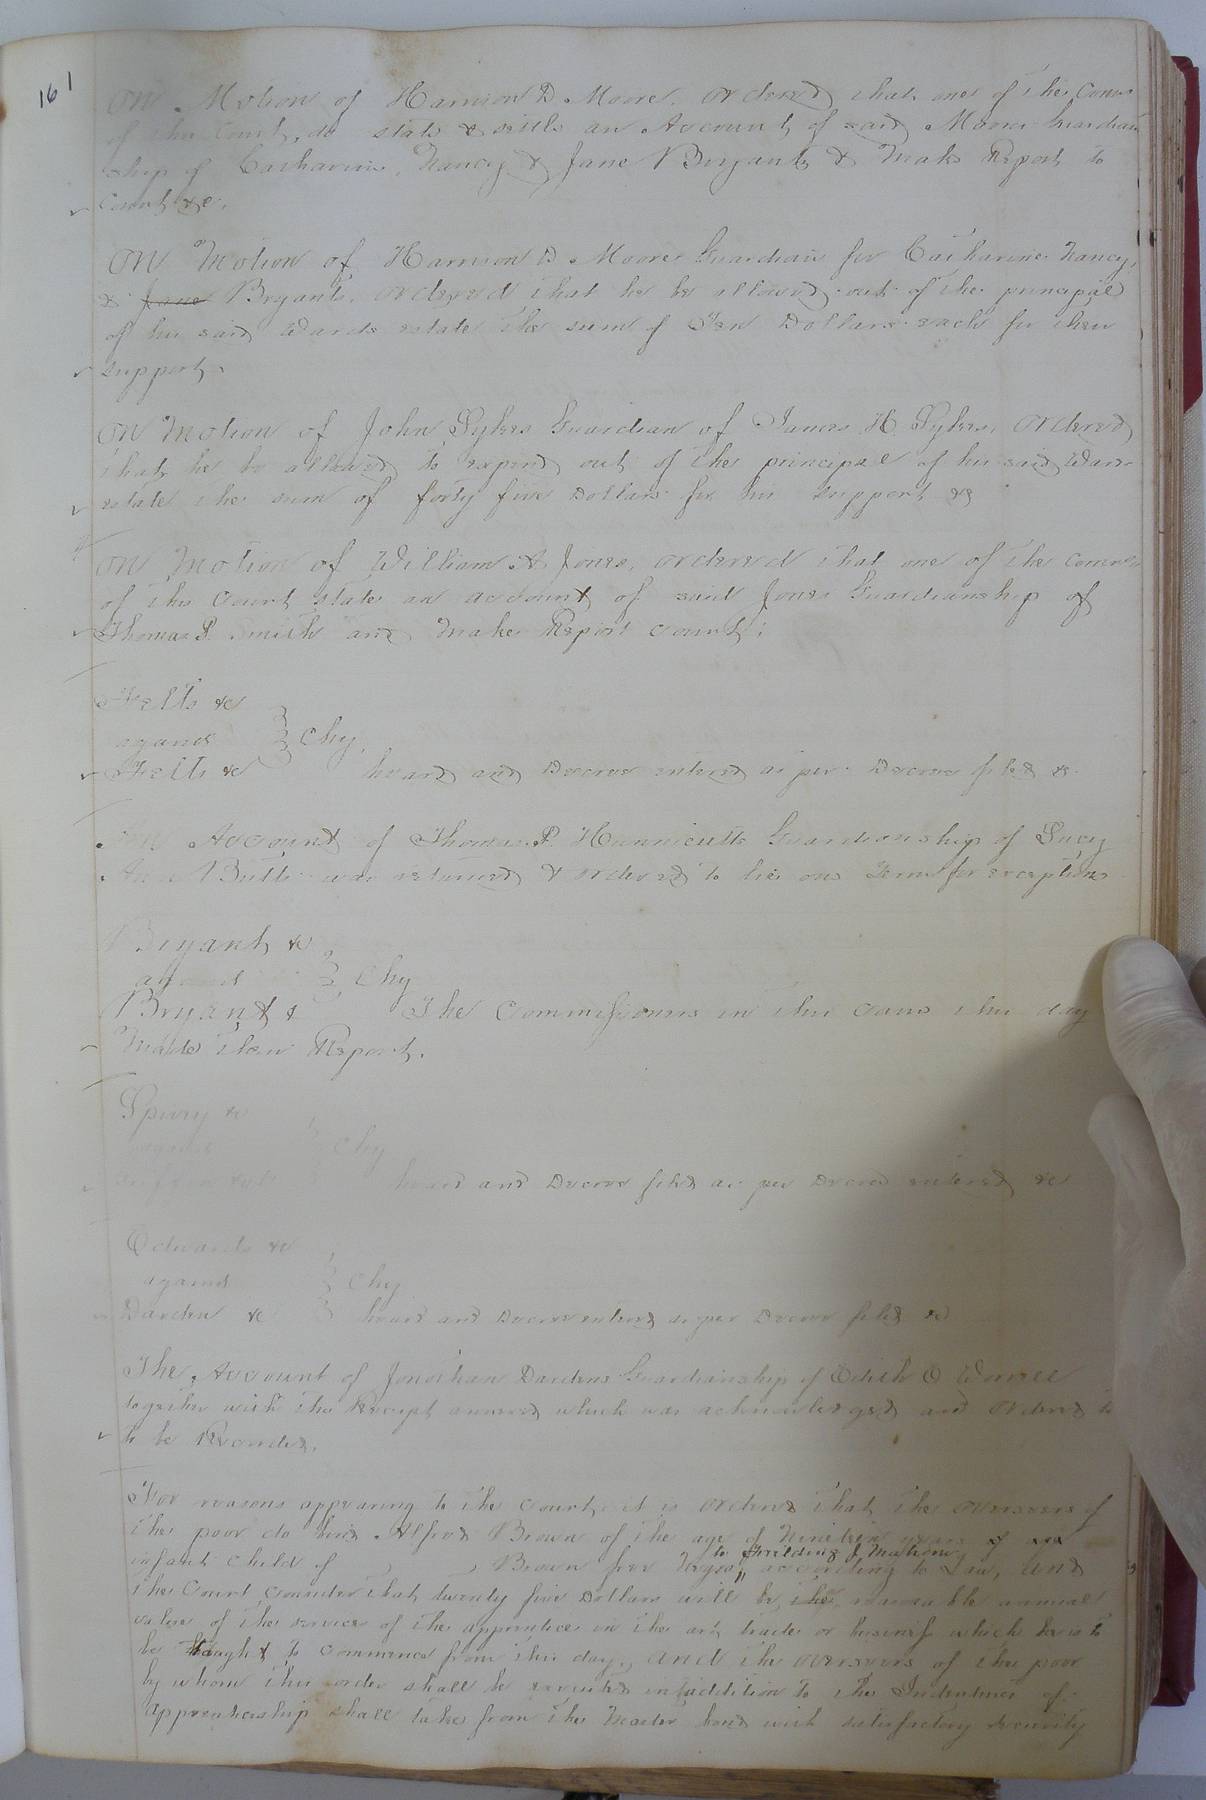 161
On Motion of Harrison D Moore, ordered that one of the Comrs
of this Court, do state & settle an Account of said Moores Guardian
ship of Catharine, Nancy & Jane Bryant & Make Report to
Court &c.
On Motion of Harrison D Moore Guardian for Catharine Nancy,
& Jane Bryants, ordered that he be allowed out of the principal
of his said Wards estate the sum of Ten Dollars each for their
support.
On Motion of John Sykes Guardian of James H Sykes, Ordered
that he be allowed to expend out of the principal of his said Wards
estate the sum of forty five Dollars for his support &c
On Motion of William A Jones, ordered that one of the Comrs
of this Court state an account of said Jones Guardianship of
Thomas P. Smith and Make Report Court;
Felts &c
against Chy
Felts &c heard and Decree entered as per Decree filed &c
An Account of Thomas P. Hunnicutts Guardianship of Lucy
Ann Butts was returned & ordered to lie one Term for exceptions
Bryant &c
against Chy
Bryant & The Commissioners in this cause this day
Made their Report.
Spivy &c
against Chy
heard and Decree filed as per Decree entered &c
Edwards &c
against Chy
Darden &c heard and Decree entered as per Decree filed &c
The Account of Jonathan Dardens Guardianship of Edith O
together with the Receipt annexed which was acknowledged and Ordered to
to be Recorded.
For reasons appearing to the Court, it is ordered that the overseers of
the poor do bind Alfred Brown of the age of Nineteen years of
to J Mahone
infant child of Brown free Negro, according to Law, and
the Court consider that twenty five Dollars will be the reasonable annual
value of the service of the apprentice in the art trade or business which he is to
be taught to commence from this day, and the overseers of the poor
by whom this order shall be executed in addition to the Indentures of
apprenticeship shall take from the Master bond with satisfactory security